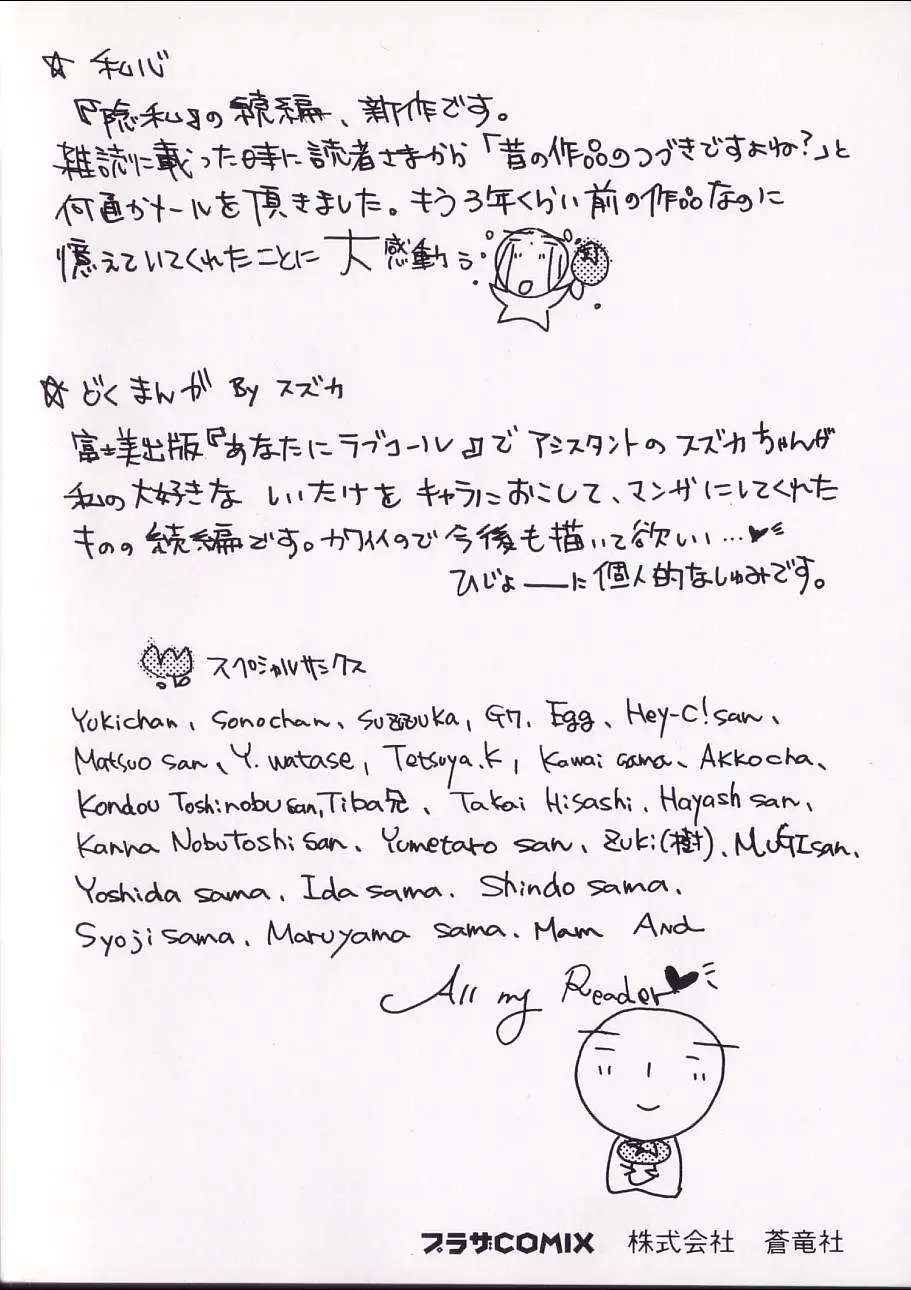 ☆ 私心
『隠私』の続編、新作です。
雑読に載った時に読者さまから「昔の作品のつづきですよね?」と
何通かメールを頂きました。もう3年くらい前の作品なのに
憶えていてくれたことに 大感動う
☆ どくまんが By スズカ
富士美出版『あなたにラブコール』で アシスタントの スズカちゃんが
私の大好きな しいたけを キャラにおこして、マンガにしてくれた
ものの 続編です。カワイイので 今後も描いて欲しい…♥
ひじょーーに個人的なしゅみです。
スペシャルサンクス
Yukichan、Sonochan、Suzzuka, G7、Egg、Hey-C!san、
Matsuo san、Y. watase, Tetsuya.K, Kawai sama、Akkocha、
Kondou Toshinobu san, Tiba兄、Takai Hisashi、Hayash san、
Kanna Nobutoshi san、Yumetaro san、Zuki(樹)、MUGIsan、
Yoshida sama、Ida sama、Shindo sama、
Syoji sama、Maruyama sama、Mam And
All my Reader♥
プラザCOMIX 株式会社 蒼竜社